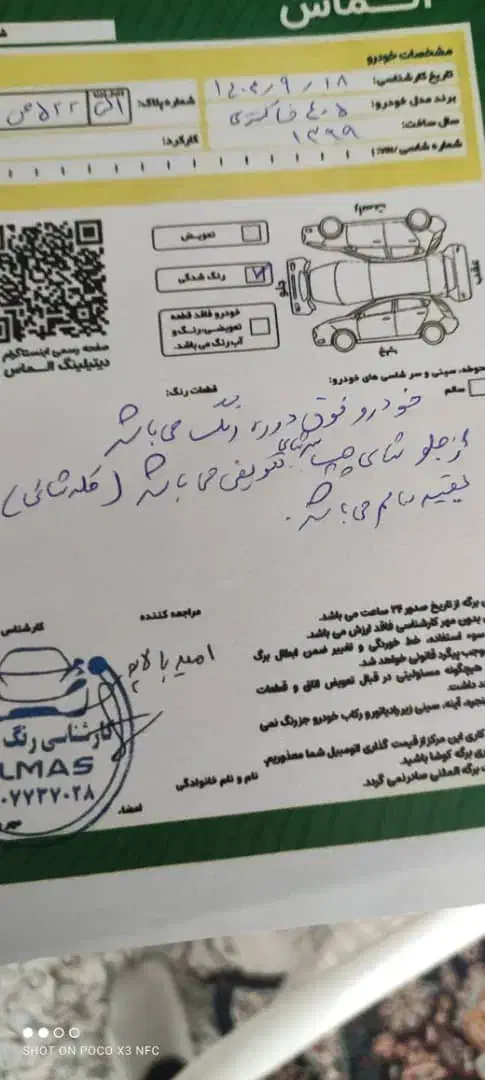 الـماس
مشخصات خودرو
تاریخ کارشناسی: ۱۴۰۴/۹/۱۸
برند مدل خودرو: ۴۰۵ خاکستری
شماره پلاک:
سال ساخت: ۱۳۹۹
کارکرد:
شماره شاسی (VIN):
راست
جلو
عقب
چپ
تعویض
رنگ شدگی
خودرو فاقد قطعه
تعویضی،رنگ و
آبرنگ می باشد.
صفحه رسمی اینستاگرام
دیتیلینگ الــماس
سینی و سر شاسی های خودرو:
سالم
قطعات رنگ:
خودرو فوق دور رنگ می باشد
از جلو شاسی چپ سرشاسی تعویض می باشد (کله شاسی)
بقیه سالم می باشد.
برگه از تاریخ صدور ۲۴ ساعت می باشد.
بدون مهر کارشناسی فاقد ارزش می باشد.
سوء استفاده، خط خوردگی و تغییر ضمن ابطال برگ
موجب پیگرد قانونی خواهد شد.
هیچگونه مسئولیتی در قبال تعویض اتاق و قطعات
آینه، سینی زیر رادیاتور و رکاب خودرو جز رنگ نمی
کاری این مرکز از قیمت گذاری اتومبیل شما معذوریم.
برگه کوشا باشید.
برگه المثنی صادر نمی گردد.
مراجعه کننده
کارشناس
امیر بالا
نام و نام خانوادگی
امضاء
کارشناسی رنگ
LMAS
۰۷۷۳۷۰۲۸
SHOT ON POCO X3 NFC